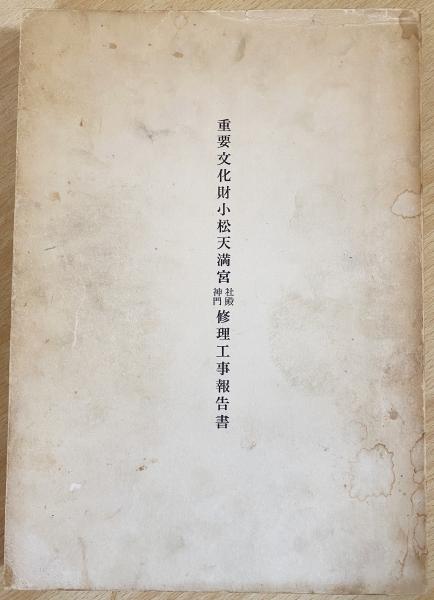 重要文化財小松天満宮社殿神門修理工事報告書